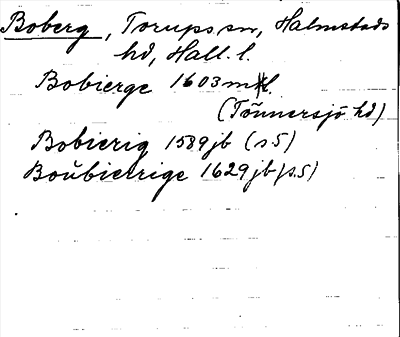 Boberg, Torups sn, Halmstads
hd, Hall. l.
Bobierge 1603 mtl.
(Tönnersjö hd)
Bobierig 1589 jb (s. 5)
Boŭbierrige 1629 jb (s. 5)